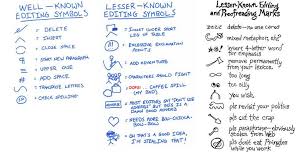 WELL-KNOWN
EDITING SYMBOLS
= DELETE
= INSERT
= CLOSE SPACE
= START NEW PARAGRAPH
= UPPER CASE
= ADD SPACE
= TRANSPOSE LETTERS
= CHECK SPELLING
LESSER-KNOWN
EDITING SYMBOLS
= INSERT UNDER SHORT
LEG OF TABLE
= EXCESSIVE EXPLANATION
POINTS!
= ADD ADVENTURE
= CHARACTERS SHOULD FIGHT
= OOPS! COFFEE SPILL
(MY BAD).
= MOST EDITORS SAY "DON'T USE
ADVERBS" BUT THIS IS A
DAMN GOOD ADVERB!
= NEEDS MORE
(SCIENCE)
= OH THAT'S A GOOD IDEA,
I'M STEALING THAT!
Lesser-Known Editing
and Proofreading Marks
delete—no one cares
mixed metaphor, ok?
insert 4-letter word
for emphasis
remove permanently
from your lexicon
too long
too silly
you wish
pls revisit your politics
pls cut the crap
pls paraphrase—obviously
stolen from Web
pls don't eat Pringles
while you work